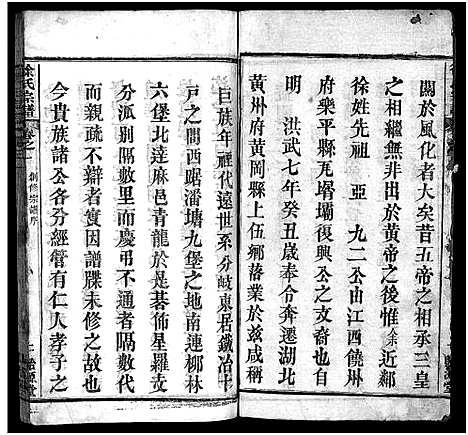 關於風化者大矣昔五帝之相承三皇
之相繼無非出於黃帝之後惟余近鄰
徐姓先祖亞九二公由江西饒州
府樂平縣瓦壻壩復興公支下於
明洪武七年癸丑歲奉令奔遷湖北
黃州府黃岡縣上伍鄉落業於兹咸稱
巨族年禋代遠世系分岐東居鐵冶十
戸之間西踞潘塘九堡之地南連柳林
六堡北達麻邑青龍於是碁佈星羅支
分派別隔數里而慶弔不通者隔數代
而親疏不辯者叟因譜牒未修之故也
今貴族諸公各分經管有仁人孝子之
徐氏宗譜
卷之一
創修宗譜序